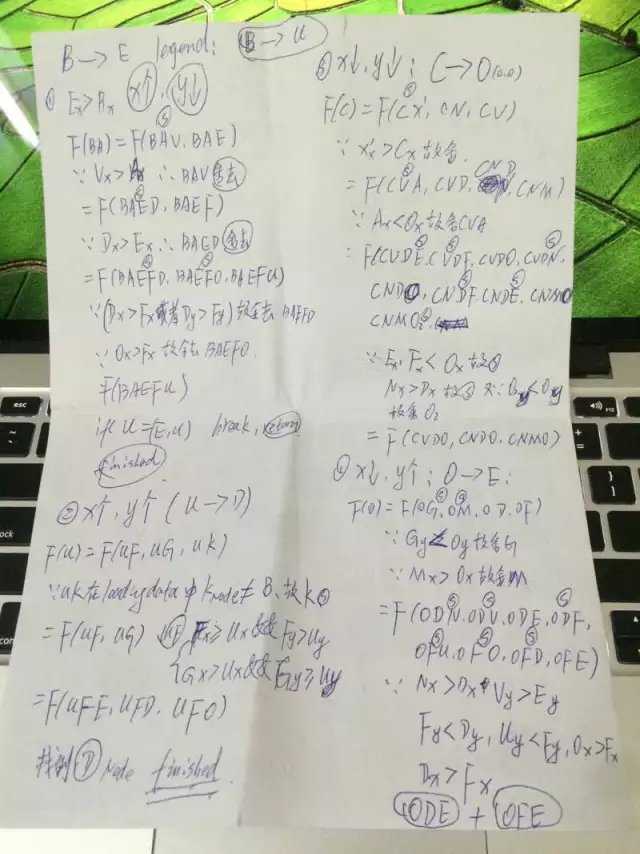 B → E legend: B → U
① Ex > Ax x↑, y↓
F(BA) = F(BAV, BAE)
∵ Vx > Ax ∴ BAV 舍去
= F(BAED, BAEF)
∵ Dx > Ex ∴ BAED 舍去
= F(BAEFD, BAEFO, BAEFU)
∵ (Dx > Fx 或者 Dy > Fy) 故舍去 BAEFD
∵ Ox > Fx 故舍去 BAEFO.
F(BAEFU)
if U = (E, U) break, return
finished
② x↑, y↑ (U → D)
F(U) = F(UF, UG, UK)
∵ UK 在 loadingdata 中 K node ≠ B, 故 K
= F(UF, UG) Fx ≥ Ux && Fy > Uy
Gx > Ux && Gy ≥ Uy
= F(UFE, UFD, UFO)
找到 D Node finished.
③ x↓, y↓ ; C → O(0,0)
F(C) = F(CX, CN, CV)
∵ Xx > Cx 故舍.
= F(CVA, CVD, CND, CNM)
∵ Ax < Ox 故舍 CVA
= F(CVDE, CVDF, CVDO, CVDN,
CNDO, CNDF, CNDE, CNMO
CNMO2
∵ Ex, Fx < Ox 故
Nx > Dx 故 又∵ Oy < Oy
故舍 O2
= F(CVDO, CNDO, CNMO)
④ x↓, y↑ ; O → E:
F(O) = F(OG, OM, OD, OF)
∵ Gy < Oy 故舍 G
∵ Mx > Ox 故舍 M
= F(ODN, ODV, ODE, ODF,
OFU, OFO, OFD, OFE)
∵ Nx > Dx Vy > Ey
Fy < Dy, Uy < Fy, Ox > Fx
Dx > Fx
ODE + OFE
esc